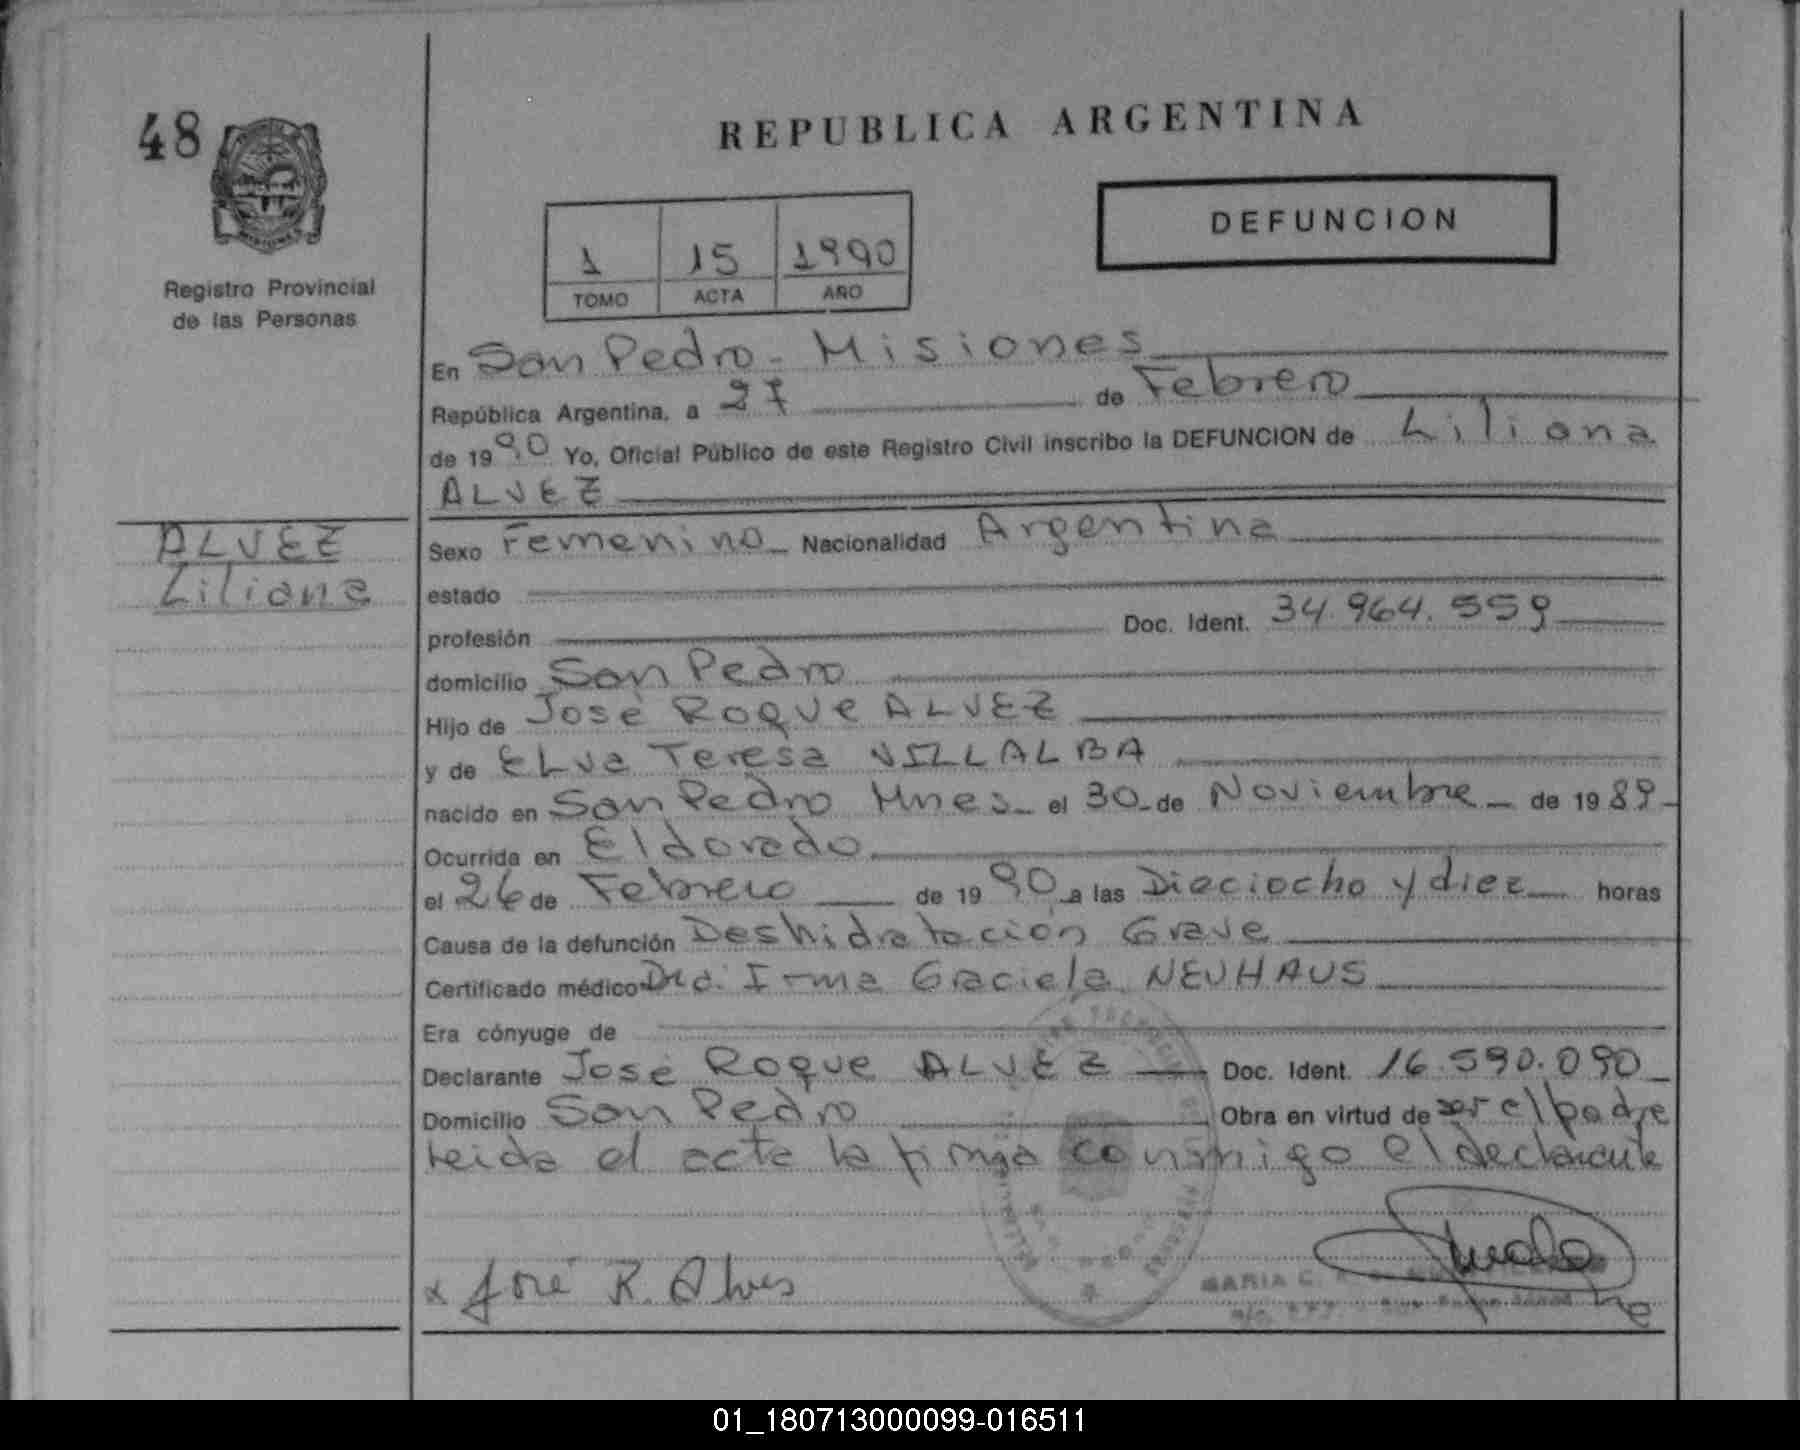 48
REPUBLICA ARGENTINA
DEFUNCION
1 15 1990
TOMO ACTA AÑO
Registro Provincial
de las Personas
En San Pedro - Misiones
República Argentina, a 27 de Febrero
de 1990 Yo, Oficial Público de este Registro Civil inscribo la DEFUNCION de Liliana
ALVEZ
ALVEZ
Liliana
Sexo Femenino Nacionalidad Argentina
estado
profesión Doc. Ident. 34.964.559
domicilio San Pedro
Hijo de José Roque ALVEZ
y de ELva Teresa VILLALBA
nacido en San Pedro Mnes. el 30 de Noviembre de 1989
Ocurrida en Eldorado
el 26 de Febrero de 1990 a las Dieciocho y diez horas
Causa de la defunción Deshidratación Grave
Certificado médico Dra. Irma Graciela NEUHAUS
Era cónyuge de
Declarante José Roque ALVEZ Doc. Ident. 16.590.090
Domicilio San Pedro Obra en virtud de ser el padre
leida el acta la firma conmigo el declarante
x José R. Alves
MARIA C.
01_180713000099-016511